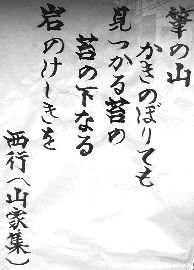 筆の山
かきのぼりても
見つかる苔の
苔の下なる
岩のけしきを
西行（山家集）